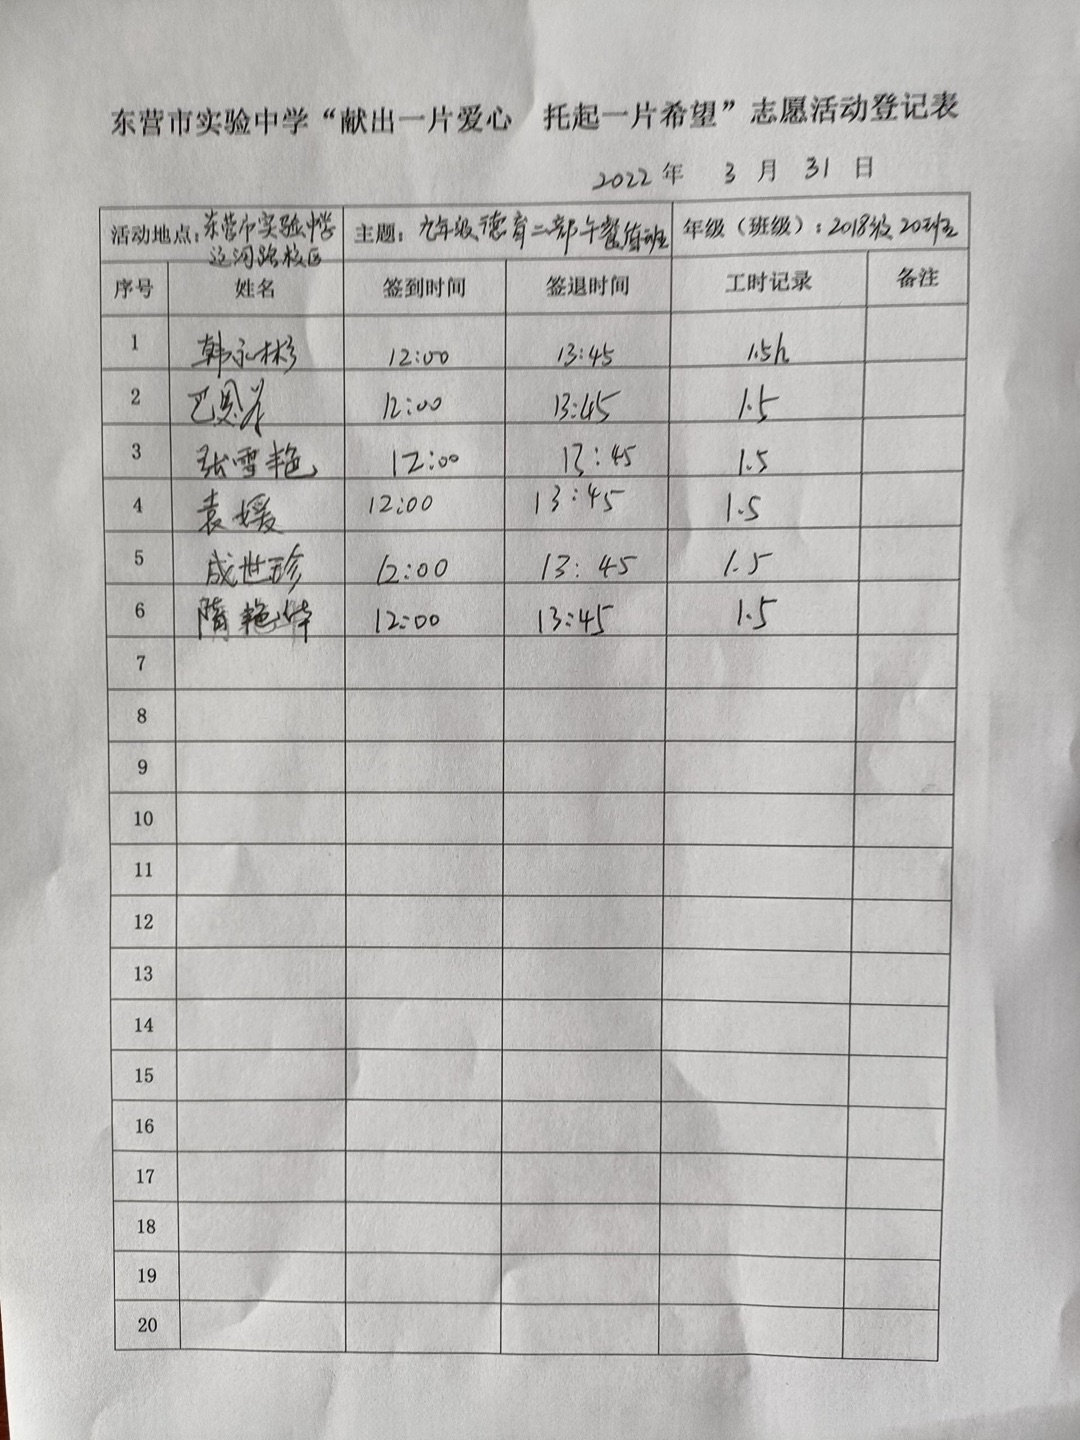 东营市实验中学“献出一片爱心 托起一片希望”志愿活动登记表
2022年 3 月 31 日
活动地点：东营市实验中学 运河路校区 主题：九年级德育二部午餐值班 年级（班级）：2018级20班
序号 姓名 签到时间 签退时间 工时记录 备注
1 韩永彬 12:00 13:45 1.5h
2 巴 12:00 13:45 1.5
3 张雪艳 12:00 13:45 1.5
4 袁媛 12:00 13:45 1.5
5 成世珍 12:00 13:45 1.5
6 隋艳华 12:00 13:45 1.5
7
8
9
10
11
12
13
14
15
16
17
18
19
20